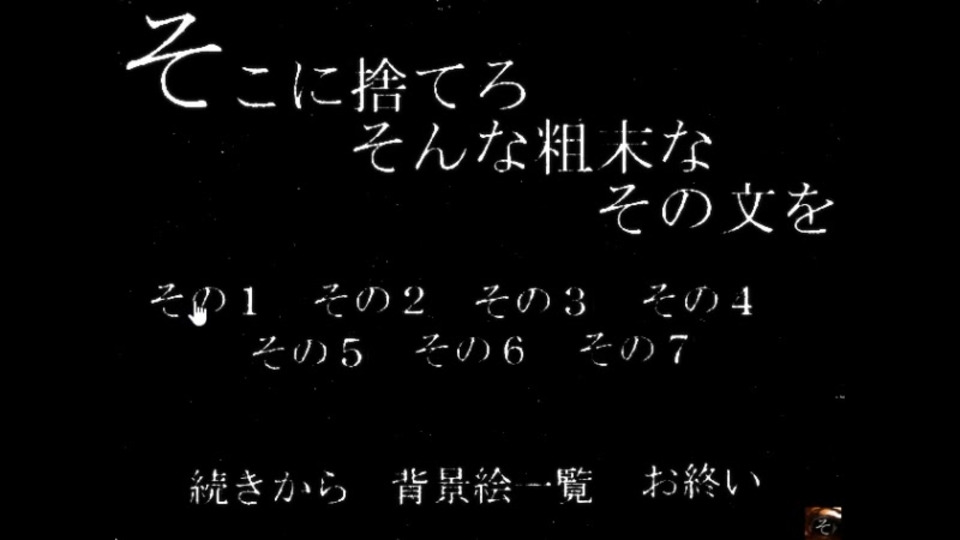 そこに捨てろ
そんな粗末な
その文を
その1 その2 その3 その4
その5 その6 その7
続きから 背景絵一覧 お終い
そ